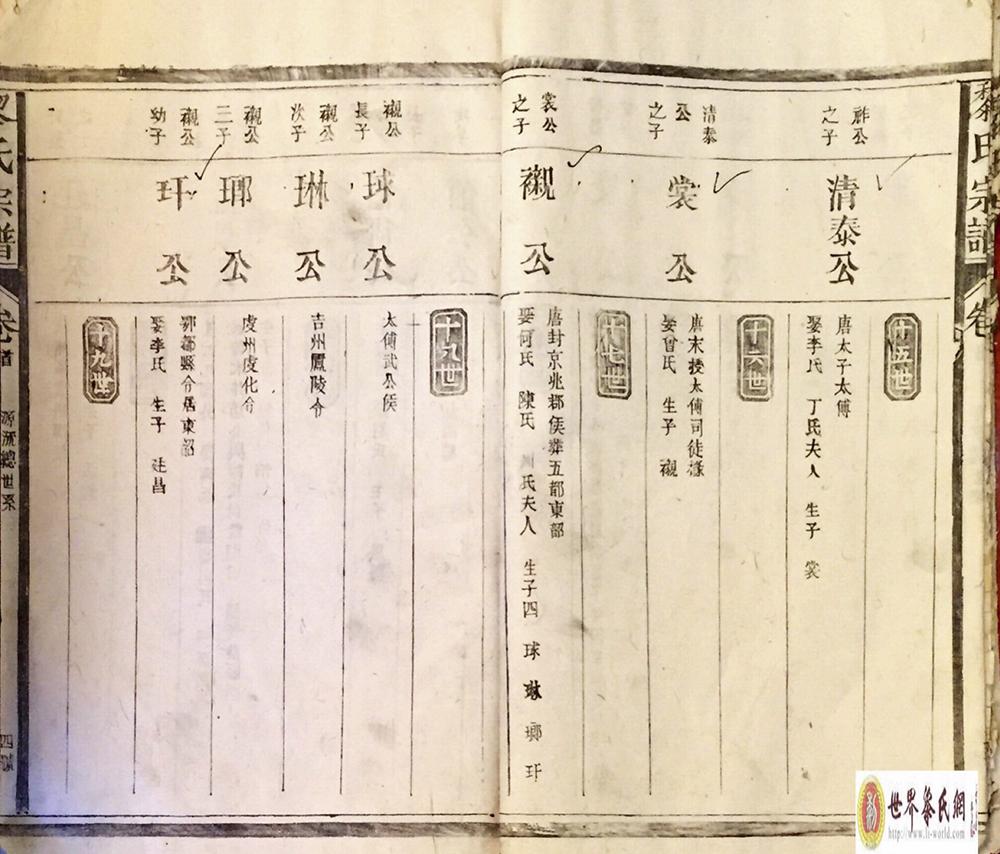 黎氏宗譜 卷
十五世
祚公
之子
清泰公
唐太子太傅
娶李氏 丁氏夫人 生子 裳
十六世
清泰
公
之子
裳公
唐末授太傅司徒様
娶曾氏 生子 襯
十七世
裳公
之子
襯公
唐封京兆郡侯葬五都東部
娶何氏 陳氏 氏夫人 生子四 球 琳 瑯 玕
十八世
襯公
長子
球公
太傅武公侯
襯公
次子
琳公
吉州鳳陵令
襯公
三子
瑯公
虔州虔化令
襯公
幼子
玕公
鄂都縣令居東韶
娶李氏 生子 廷昌
十九世
黎氏宗譜 卷首 源流總世系 四
世界黎氏網
http://www.li-world.com